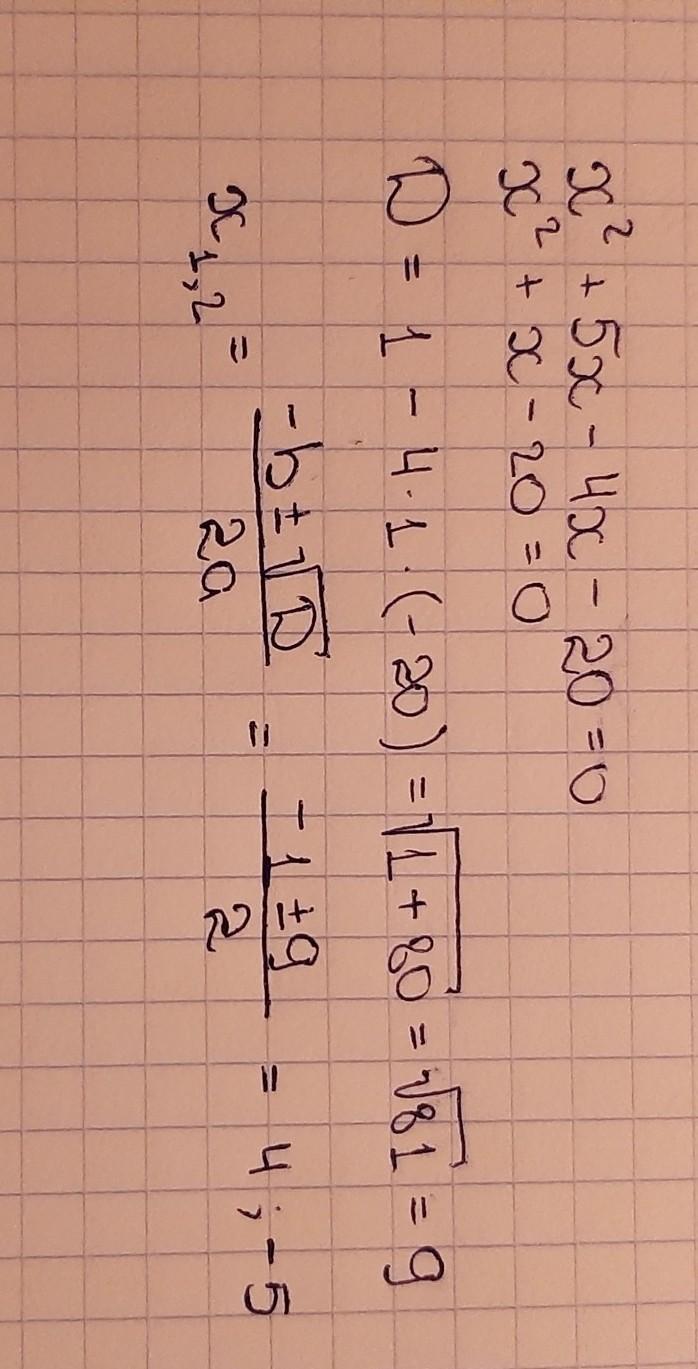 x² + 5x - 4x - 20 = 0
x² + x - 20 = 0
D = 1 - 4·1·(-20) = √(1+80) = √81 = 9
x₁,₂ = (-b±√D)/(2a) = (-1±9)/2 = 4; -5